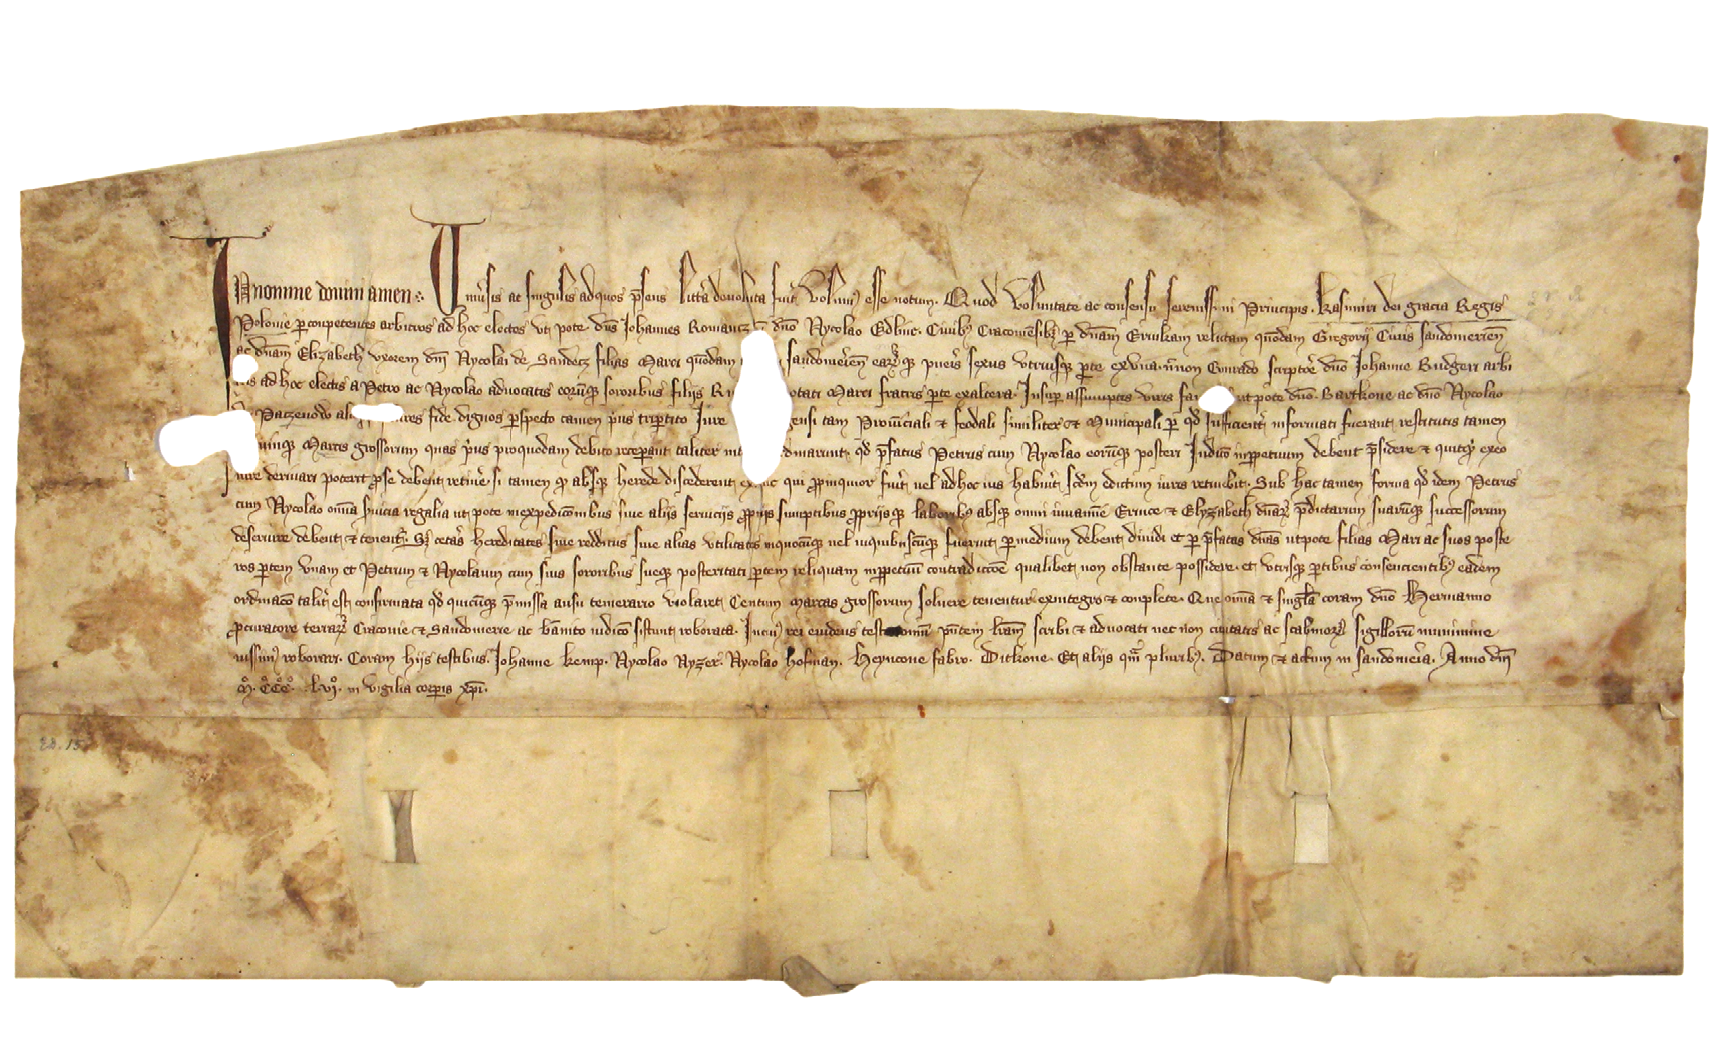 In nomine domini amen. Uniūsis ac singulis ad quos p̄sens littera deuoluta fuit volum9 esse notum. Quod voluntate ac consensu serenissimi Principis. Kasimiri dei gracia Regis
Polonie per competentes arbitros ad hoc electos vt pote. dn̄s Johannes Romancz dn̄o Nycolao Edlinc. Ciuib9 Cracouiēsib9 per dn̄am relictam quōdam Gregorij Ciuis sandomeriēn
ac dn̄am Elizabeth vxorem dn̄i Nycolai de Sandecz filias Marci quōdam sandomeriēn earumq̄ pueris sexus vtriusq̄ parte ex vna. n̄non Conrado scriptore dn̄o Johanne Budgeri arbi
ad hoc electis a Petro ac Nycolao aduocatis eorumq̄ sororibus filijs Marci fratris parte ex altera. Insuper assumptis viris ut pote dn̄o. Bartkone ac dn̄o Nycolao
Paczenow fide. dignos perspecto tamen prius tripertito Jure tam Prouinciali et feodali similiter et Municipali per qd̄ sufficienter informati fuerant. restitutis tamen
Marcis grossorum quas prius pro quodam debito receperant taliter qd̄ p̄fatus Petrus cum Nycolao eorumq̄ posteri Judicio inperpetuum debent p̄sidere et quitq̄d ex eo
Jure deriuari poterit pro se debent retinere. si tamen absq̄ herede discederent qui propinquior fuerit vel ad hoc ius habuerit. scdm̄ dictum iuris retinebit. Sub hac tamen forma qd̄ idem Petrus
cum Nycolao omnia seruicia regalia ut pote in expedicionibus siue alijs seruicijs proprijs sumptibus proprijsq̄ laborib9 absq̄ omni iuuamine et Elyzabeth dn̄arum p̄dictarum suarumq̄ successorum
deseruire debent et tenentur. Sed ceteras hereditates siue redditus siue alias vtilitates in quocumq̄ vel in quibuscumq̄ fuerint. per medium debent diuidi et per p̄fatas dn̄as ut pote filias Marci ac suos poste
ros partem vnam et Petrum et Nycolaum cum suis sororibus sueq̄ posteritati partem reliquam inperpetuum contradiccione qualibet non obstante possidere. et vtrisq̄ partibus consenciencientib9 eadem
ordinacio taliter est confirmata qd̄ quicumq̄ p̄missa ausu temerario violaret. Centum marcas grossorum soluere tenentur ex integro et complete. Que omnia et singula coram dn̄o Hermanno
procuratore terrarum Cracouie et Sandomerie ac bannito iudicio sistunt roborata. In cui9 rei euidens testimonium p̄ntem lr̄am scribi et aduocati nec non ciuitatis ac scabinorum sigillorum munimine
iussim9 roborari. Coram hijs testibus. Johanne kemp. Nycolao Ryzer. Nycolao hofman. Heyncone fabro. Ditkone. Et alijs qm̄ plurib9. Datum et actum in sandomeria. Anno dn̄i
M°. CCC°. Lvi°. in vigilia corporis xp̄i.